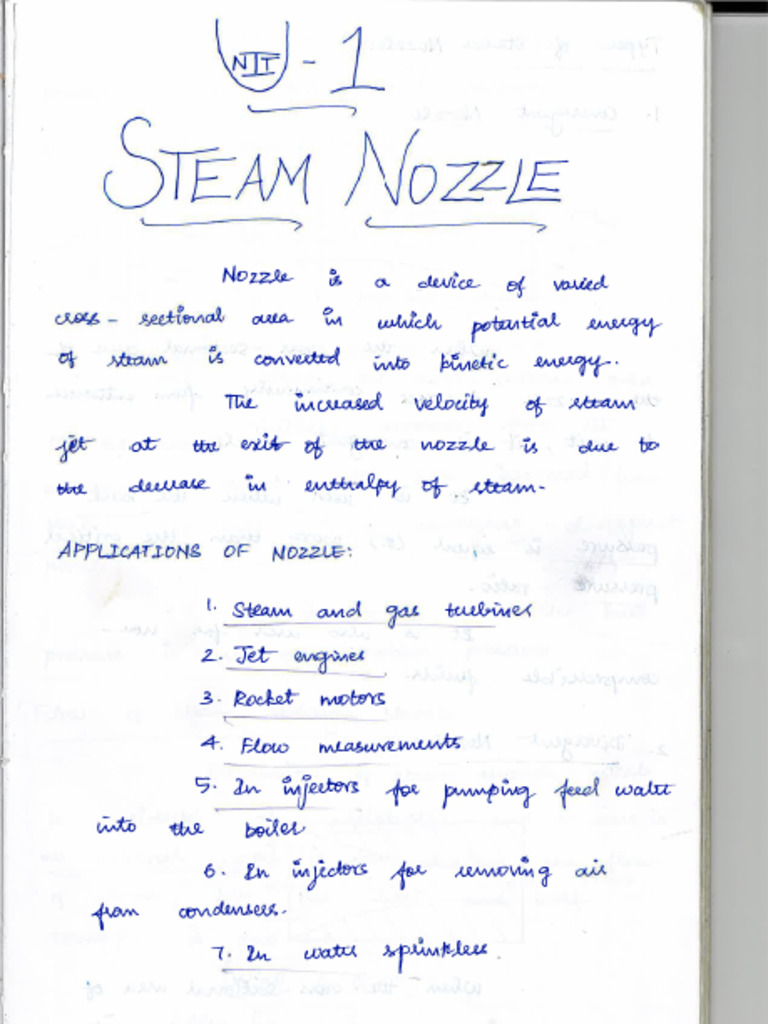 UNIT - 1
STEAM NOZZLE
Nozzle is a device of varied
cross-sectional area in which potential energy
of steam is converted into kinetic energy.
The increased velocity of steam
jet at the exit of the nozzle is due to
the decrease in enthalpy of steam.
APPLICATIONS OF NOZZLE:
1. Steam and gas turbines
2. Jet engines
3. Rocket motors
4. Flow measurements
5. In injectors for pumping feed water
into the boiler
6. In injectors for removing air
from condensers.
7. In water sprinklers.